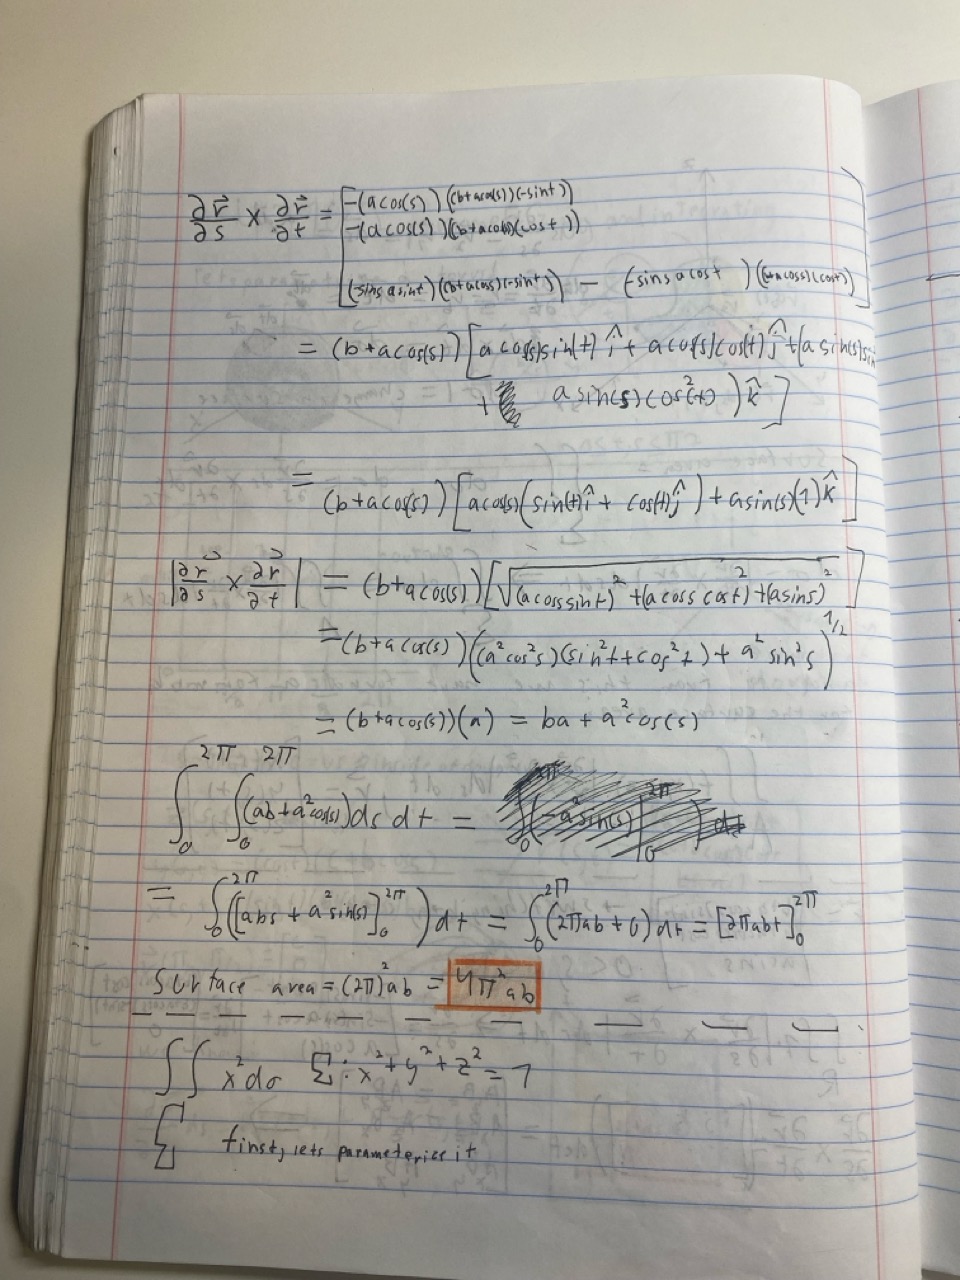 ∂r⃗/∂s × ∂r⃗/∂t = [-(a cos(s))((b+a cos(s))(-sin t))
-(a cos(s))((b+a cos s)(cos t))
(-sin s a sin t)((b+a cos s)(-sin t)) - (-sin s a cos t)((b+a cos s)(cos t))]
= (b+a cos(s)) [a cos(s) sin(t) î + a cos(s) cos(t) ĵ + (a sin(s) sin
+ a sin(s) cos²(t)) k̂]
= (b+a cos(s)) [a cos(s) (sin(t) î + cos(t) ĵ) + a sin(s)(1) k̂]
|∂r⃗/∂s × ∂r⃗/∂t| = (b+a cos(s)) [√((a cos s sin t)² + (a cos s cos t)² + (a sin s)²)]
= (b+a cos(s)) ((a² cos² s)(sin² t + cos² t) + a² sin² s)^1/2
= (b+a cos(s))(a) = ba + a² cos(s)
∫₀^2π ∫₀^2π (ab + a² cos(s)) ds dt =
= ∫₀^2π ([abs + a² sin(s)]₀^2π) dt = ∫₀^2π (2πab + 0) dt = [2πabt]₀^2π
surface area = (2π)² ab = 4π² ab
∫∫ x² dσ Σ: x² + y² + z² = 1
Σ first, lets parameterice it